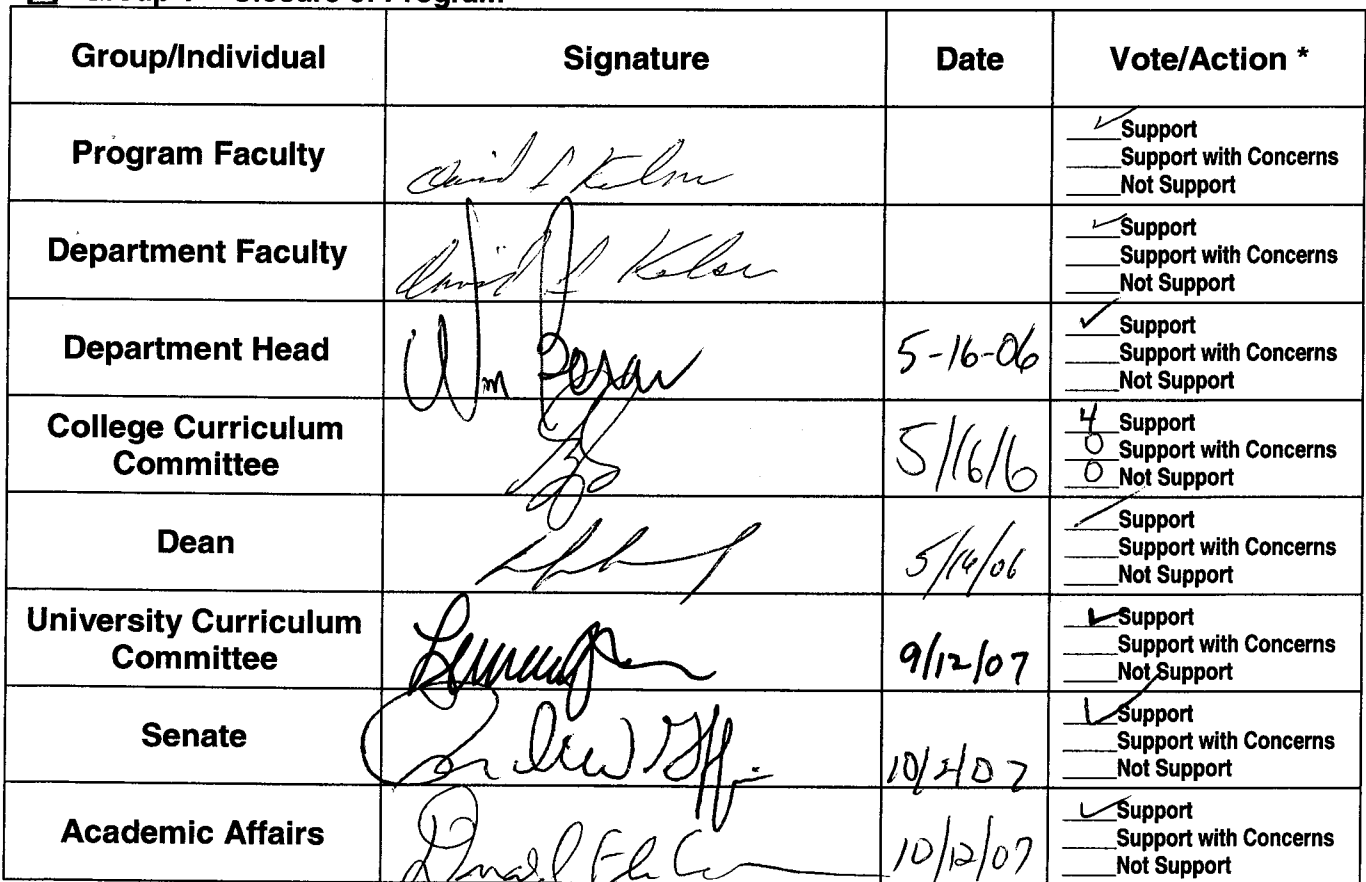 Group/Individual Signature Date Vote/Action *
Program Faculty
David L Kelso
✓ Support
Support with Concerns
Not Support
Department Faculty
David L Kelso
✓ Support
Support with Concerns
Not Support
Department Head
Wm
5-16-06
✓ Support
Support with Concerns
Not Support
College Curriculum
Committee
5/16/6
4 Support
0 Support with Concerns
0 Not Support
Dean
✓ Support
Support with Concerns
Not Support
University Curriculum
Committee
9/12/07
✓ Support
Support with Concerns
Not Support
Senate
✓ Support
Support with Concerns
Not Support
Academic Affairs
10/12/07
✓ Support
Support with Concerns
Not Support